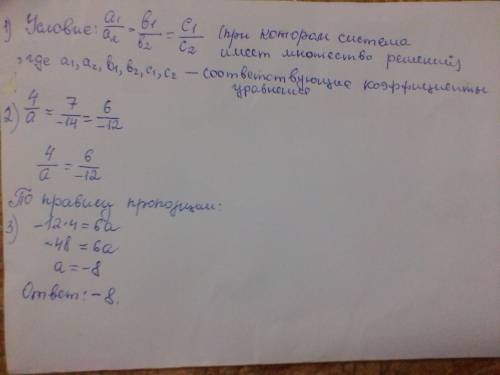 1) Условие: a₁/a₂ = b₁/b₂ = c₁/c₂ (при котором система
имеет множество решений)
, где a₁, a₂, b₁, b₂, c₁, c₂ — соответствующие коэффициенты
уравнение
2) 4/a = 7/-14 = 6/-12
4/a = 6/-12
По правилу пропорции:
3) -12·4 = 6a
-48 = 6a
a = -8
Ответ: -8.